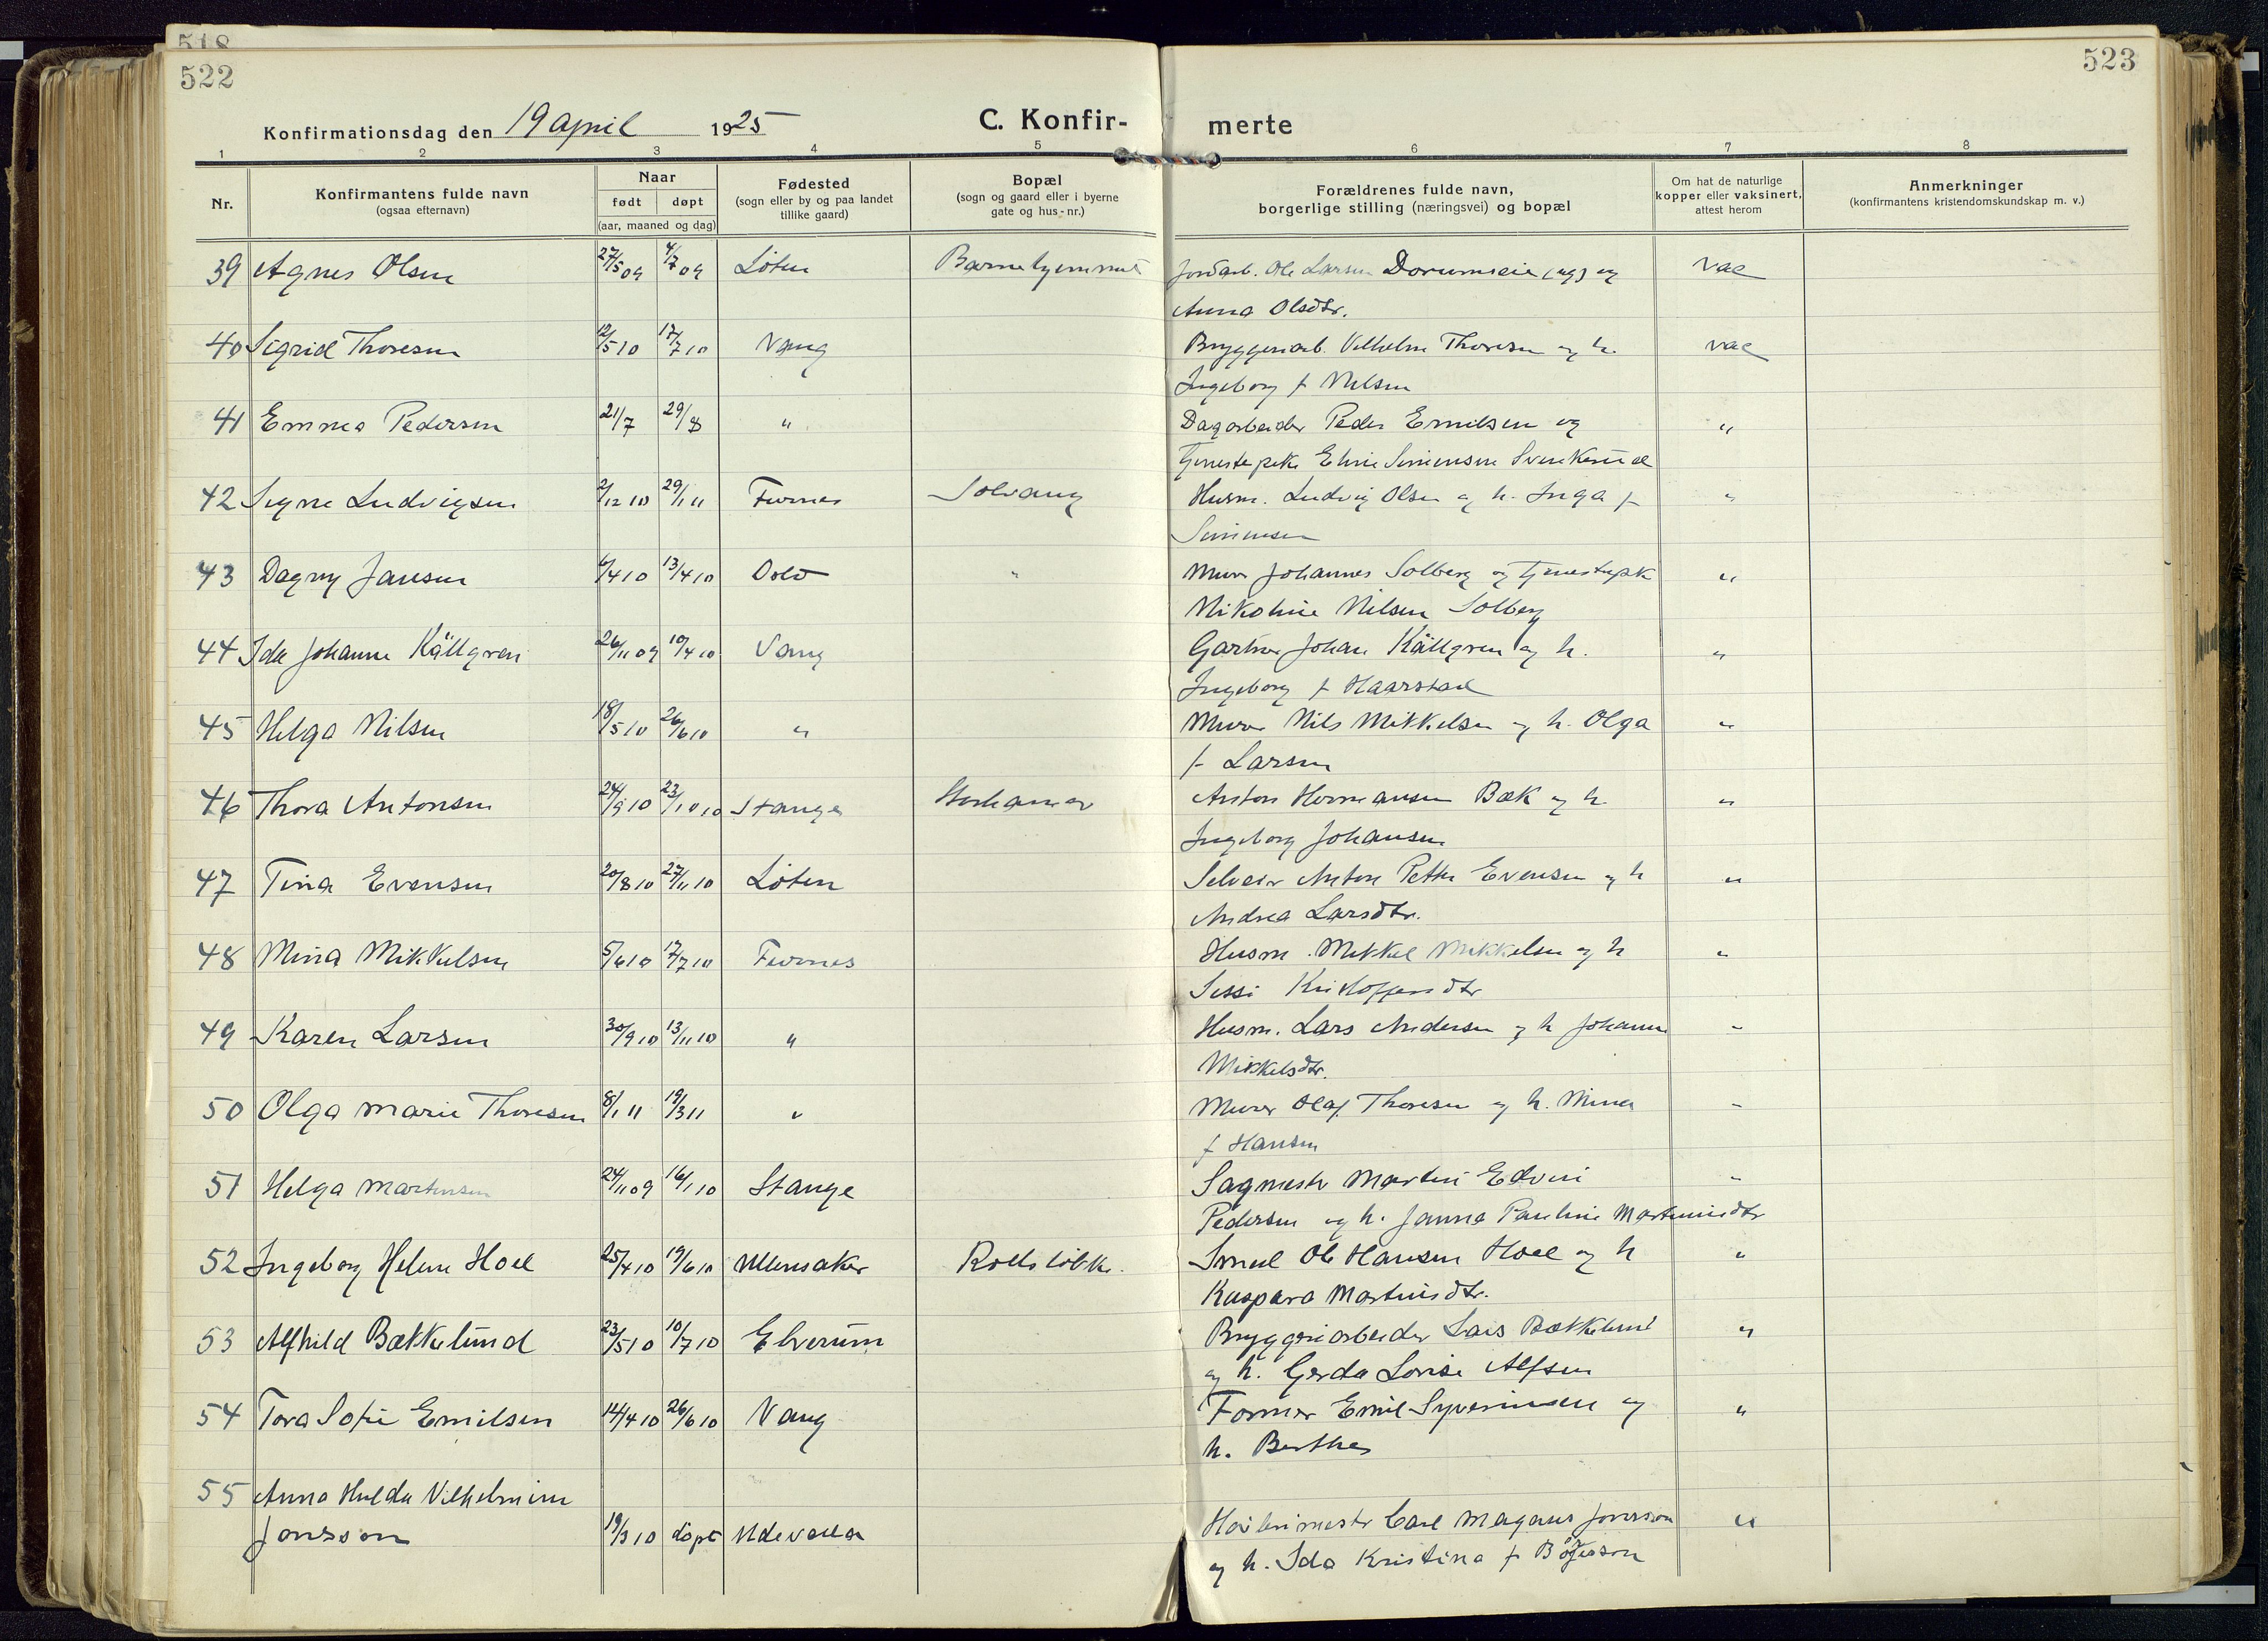 518
522
523
Konfirmationsdag den 19 april 1925
C. Konfir- merte
1 2 3 4 5 6 7 8
Nr.
Konfirmantens fulde navn
(ogsaa efternavn)
Naar
født døpt
(aar, maaned og dag)
Fødested
(sogn eller by og paa landet
tillike gaard)
Bopæl
(sogn og gaard eller i byerne
gate og hus-nr.)
Forældrenes fulde navn,
borgerlige stilling (næringsvei) og bopæl
Om hat de naturlige
kopper eller vaksinert,
attest herom
Anmerkninger
(konfirmantens kristendomskundskap m. v.)
39 Agnes Olsen 27/5 09 4/7 09 Löten Barnehjemmet Jordarb. Ole Larsen Dorumseie (ug) og vac
Anna Olsdtr.
40 Sigrid Thoresen 12/5 10 17/7 10 Vang Bryggeriarb. Vilhelm Thoresen og h. vac
Ingeborg f Nilsen
41 Emma Pedersen 21/7 29/8 " Dagarbeider Peder Emilsen og "
Tjenestepike Eline Simensen Svenkerud
42 Signe Ludvigsen 2/12 10 29/1 11 Furnes Solvang Husm. Ludvig Olsen og h. Inga f "
Simensen
43 Dagny Jansen 6/4 10 13/4 10 Oslo " Murer Johannes Solberg og tjenestepk "
Nikoline Nilsen Solberg
44 Ida Johanne Källgren 26/11 09 10/4 10 Vang Gartner Johan Källgren og h. "
Ingeborg f Haarstad
45 Helga Nilsen 18/5 10 26/6 10 " Murer Nils Mikkelsen og h. Olga "
f Larsen
46 Thora Antonsen 24/9 10 23/10 10 Stange Storhamar Anton Hermansen Bæk og h. "
Ingeborg Johansen
47 Tina Evensen 20/8 10 27/11 10 Löten Selveier Anton Petter Evensen og h "
Andrea Larsdtr.
48 Mina Mikkelsen 5/6 10 17/7 10 Furnes Husm. Mikkel Mikkelsen og h "
Sissi Kristoffersdtr
49 Karen Larsen 30/9 10 13/11 10 " Husm. Lars Andersen og h Johanne "
Mikkelsdtr.
50 Olga Marie Thoresen 8/1 11 19/3 11 " Murer Olaf Thoresen og h. Mina "
f Hansen
51 Helga Martinsen 24/11 09 16/1 10 Stange Sagmestr Martin Edvin "
Pedersen og h. Janna Pauline Martinusdtr
52 Ingeborg Helene Hoel 25/4 10 19/6 10 Ullensaker Rollslökke. Smed Ole Hansen Hoel og h "
Kaspara Martinisdtr.
53 Alfhild Bækkelund 23/5 10 10/7 10 Elverum Bryggeriarbeider Lars Bækkelund "
og h. Gerda Lovise Alfsen
54 Tora Sofie Emilsen 14/4 10 26/6 10 Vang Former Emil Syverinsen og "
h. Berthea
55 Anna Hulda Vilhelmine
Jonsson 19/3 10 döpt Udevalla mestr Carl Magnus Jonsson "
og h. Ida Kristina f Börjesson